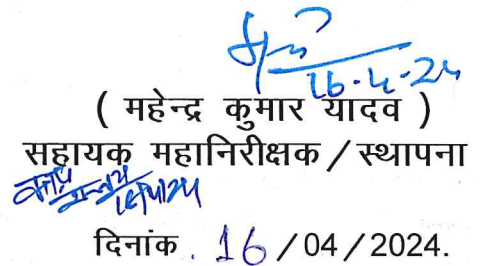 16-4-24
( महेन्द्र कुमार यादव )
सहायक महानिरीक्षक / स्थापना
दिनांक . 16 / 04 / 2024.